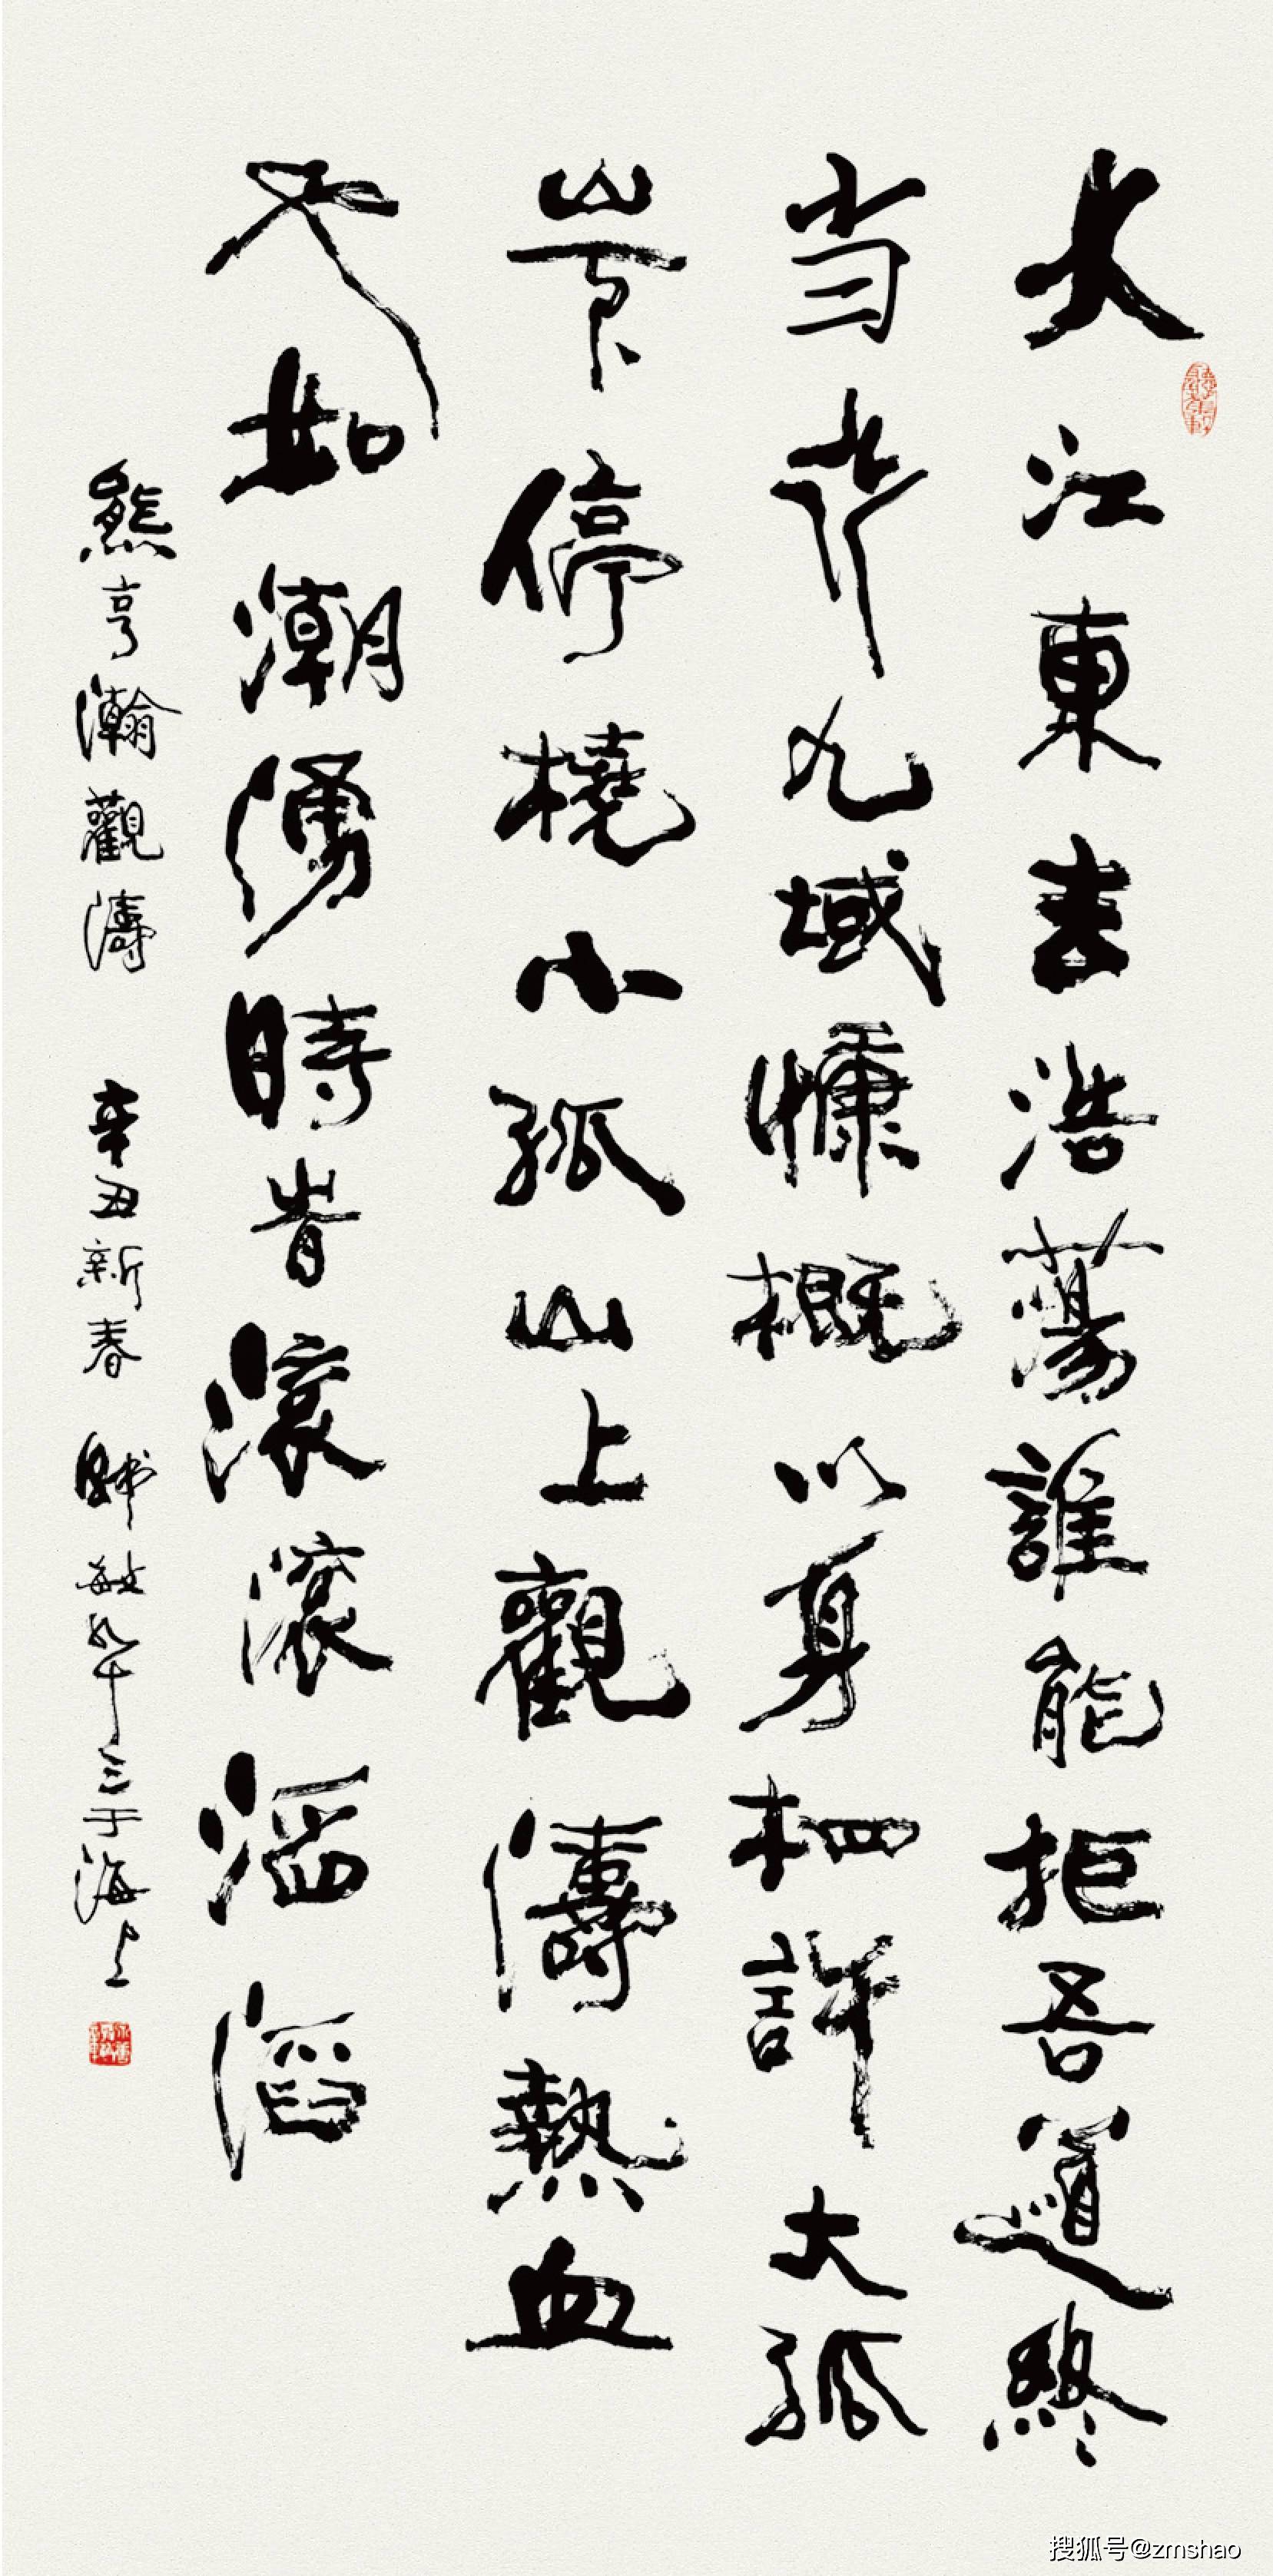 大江東去浩蕩誰能拒吾道終
当行九域慷概以身相許大孤
山下停橈小孤山上觀濤熱血
也如潮湧時旹滾滾滔滔
熊亨瀚觀濤 辛丑新春 韓敏九十三于海上
搜狐号@zmshao